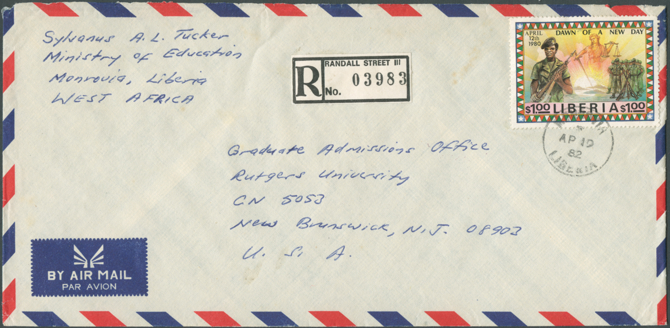 Sylvanus A. L. Tucker
Ministry of Education
Monrovia, Liberia
WEST AFRICA
RANDALL STREET III
R
No. 03983
APRIL 12th 1980
DAWN OF A NEW DAY
$1.00 LIBERIA $1.00
AP 19
82
LIBERIA
Graduate Admissions Office
Rutgers University
CN 5053
New Brunswick, N.J. 08903
U. S. A.
BY AIR MAIL
PAR AVION